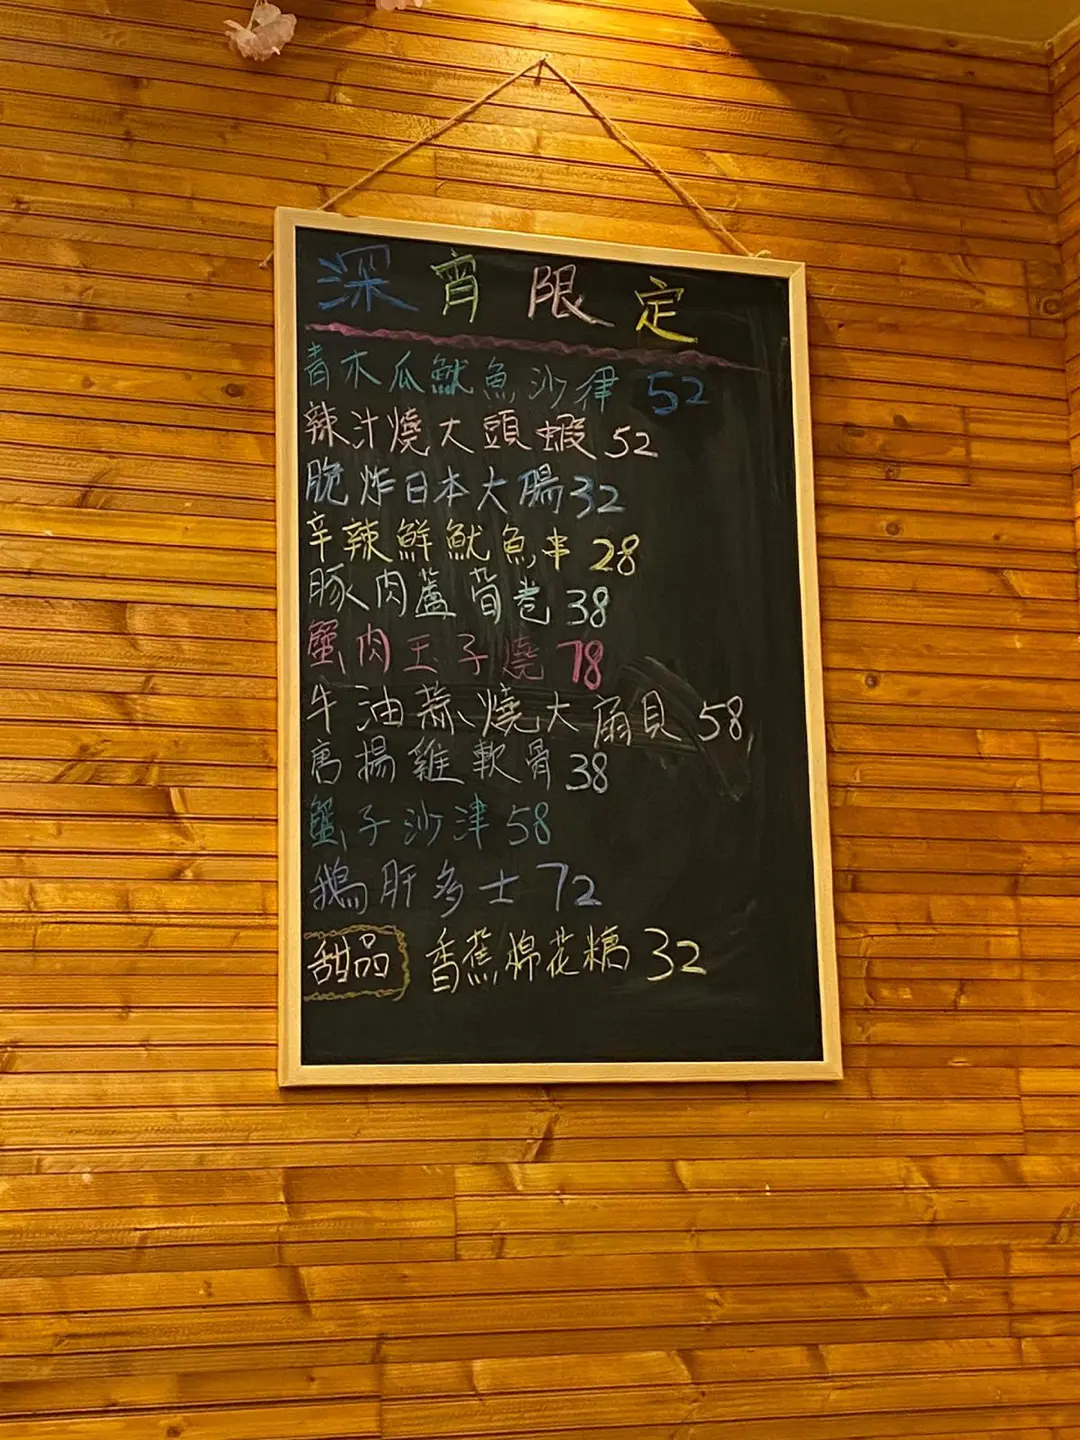 深宵限定
青木瓜魷魚沙律 52
辣汁燒大頭蝦 52
脆炸日本大腸 32
辛辣鮮魷魚串 28
豚肉蘆荀卷 38
蟹肉玉子燒 78
牛油蒜燒大扇貝 58
唐揚雞軟骨 38
蟹子沙津 58
鵝肝多士 72
甜品 香蕉棉花糖 32